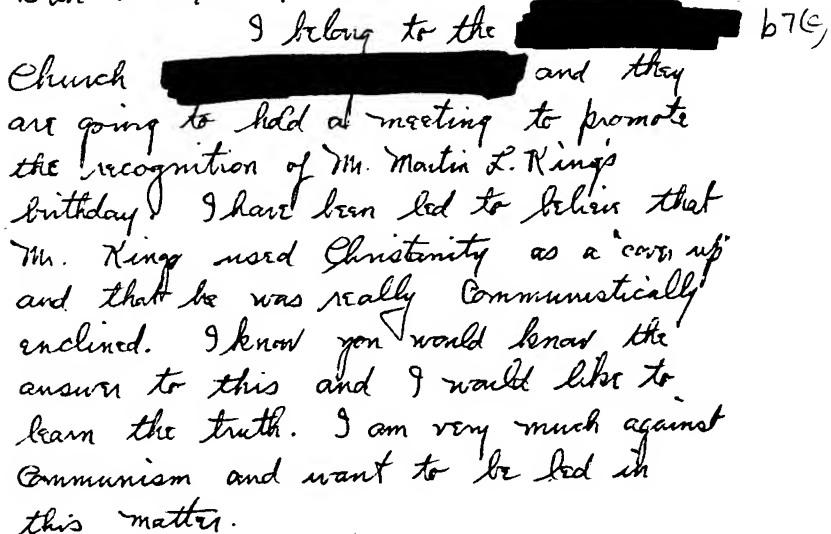 I belong to the b7(C)
Church and they
are going to hold a meeting to promote
the recognition of Mr. Martin L. King's
birthday. I have been led to believe that
Mr. King used Christanity as a "cover up"
and that he was really Communistically
enclined. I know you would know the
answer to this and I would like to
learn the truth. I am very much against
Communism and want to be led in
this matter.